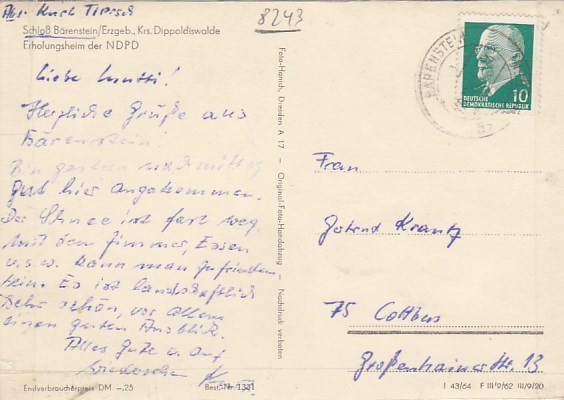 Abs. Kurt
8243
Schloß Bärenstein/Erzgeb., Krs. Dippoldiswalde
Erholungsheim der NDPD
Liebe Mutti!
Herzliche Grüße aus
Bärenstein.
Bin gestern nachmittag
gut hier angekommen.
Der Schnee ist fast weg.
Mit dem Zimmer, Essen
u.s.w. kann man zufrieden
sein. Es ist landschaftlich
sehr schön, vor allem
einen guten Ausblick.
Alles gute u. auf
Wiedersehn
Endverbraucherpreis DM –,25
Best.-Nr. 1331
Foto-Hanich, Dresden A 17 — Original-Foto-Handabzug — Nachdruck verboten
BÄRENSTEIN
DEUTSCHE
DEMOKRATISCHE REPUBLIK
10
Frau
Krantz
75 Cottbus
Großenhainer Str. 13
I 43/64 F III/9/62 III/9/20